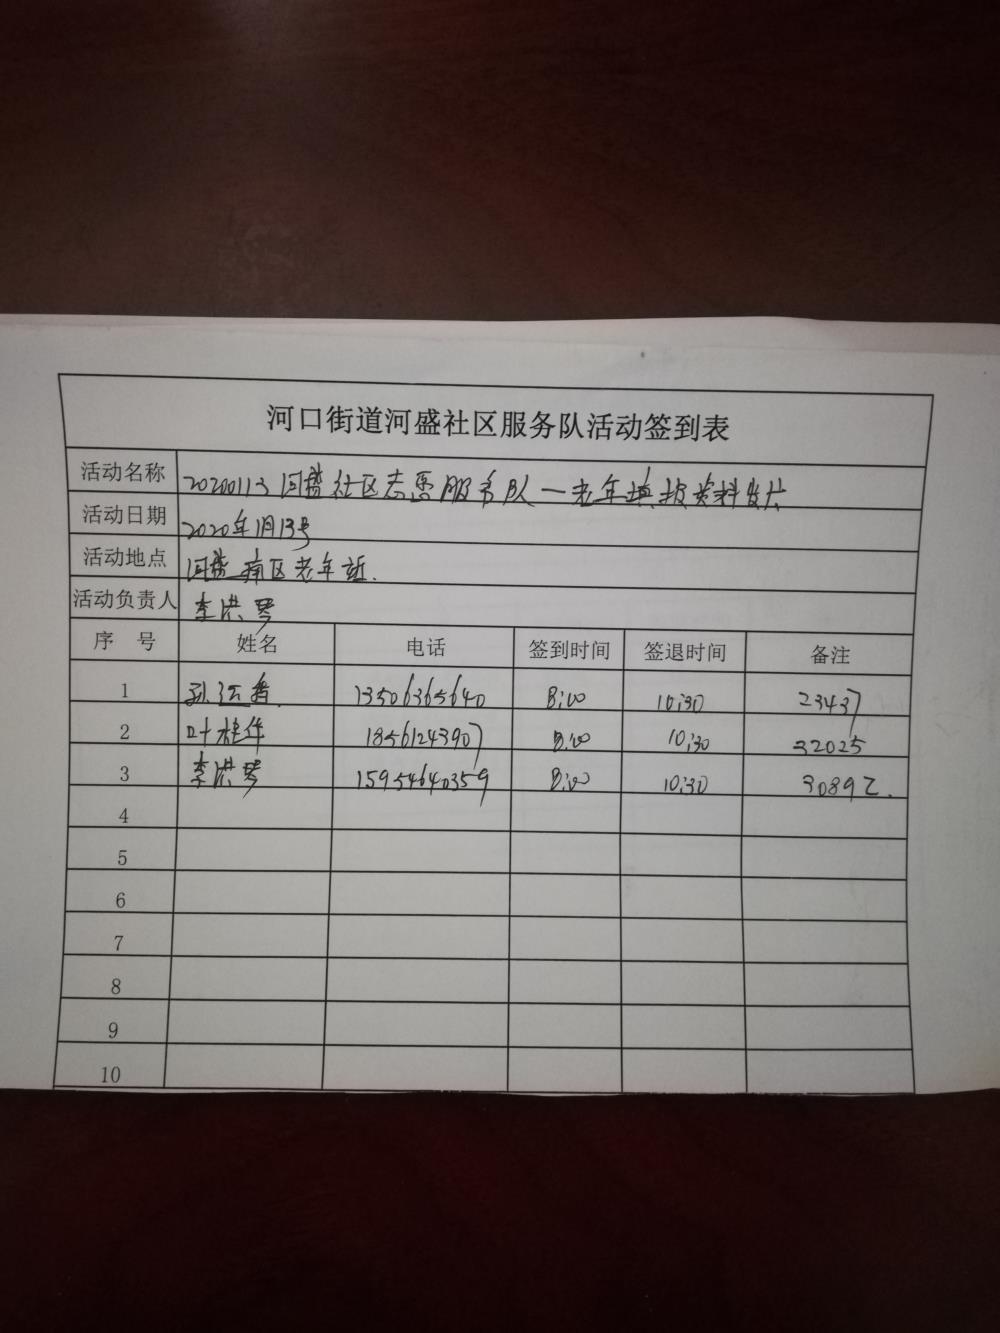 河口街道河盛社区服务队活动签到表
活动名称 20200113 河盛社区志愿服务队一老年填报资料发放
活动日期 2020年1月13号
活动地点 河盛南区老年站.
活动负责人 李洪琴
序 号 姓名 电话 签到时间 签退时间 备注
1 孙 13506365640 8:00 10:30 23437
2 叶桂华 18561243907 8:00 10:30 32025
3 李洪琴 15954640359 8:00 10:30 30892.
4
5
6
7
8
9
10